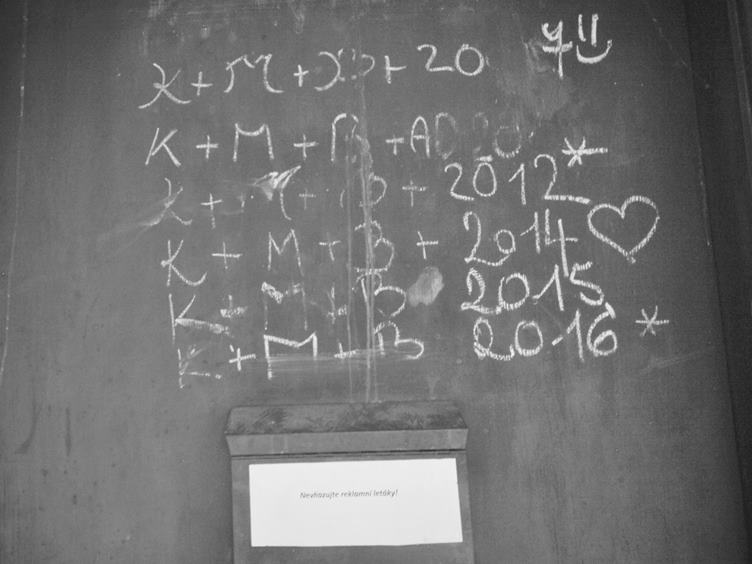 K+M+B+ 20
K + M + B +
K + M + B + 2012
K + M + B + 2014
K + M + B 2015
K + M + B 2016
Nevhazujte reklamní letáky!